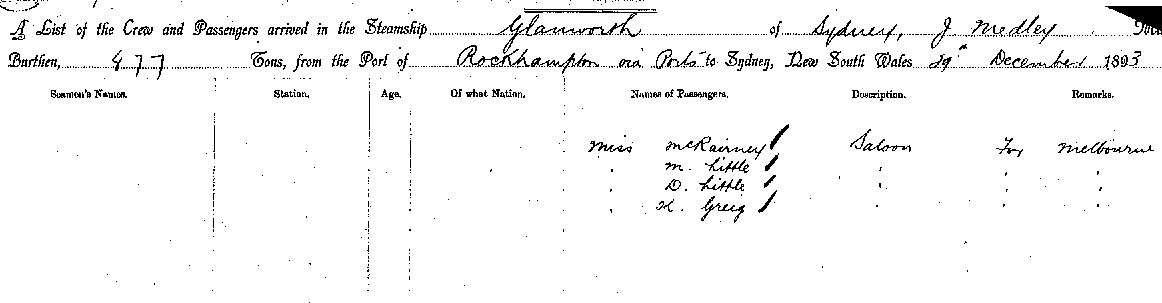 A List of the Crew and Passengers arrived in the Steamship Glanworth of Sydney, J. Medley
Burthen, 477 Tons, from the Port of Rockhampton via Ports to Sydney, New South Wales 29th December 1893
Seamen's Names. Station. Age. Of what Nation. Names of Passengers. Description. Remarks.
Miss McKairney Saloon For Melbourne
" M. Little " " "
" D. Little " " "
" K. Greig " " "